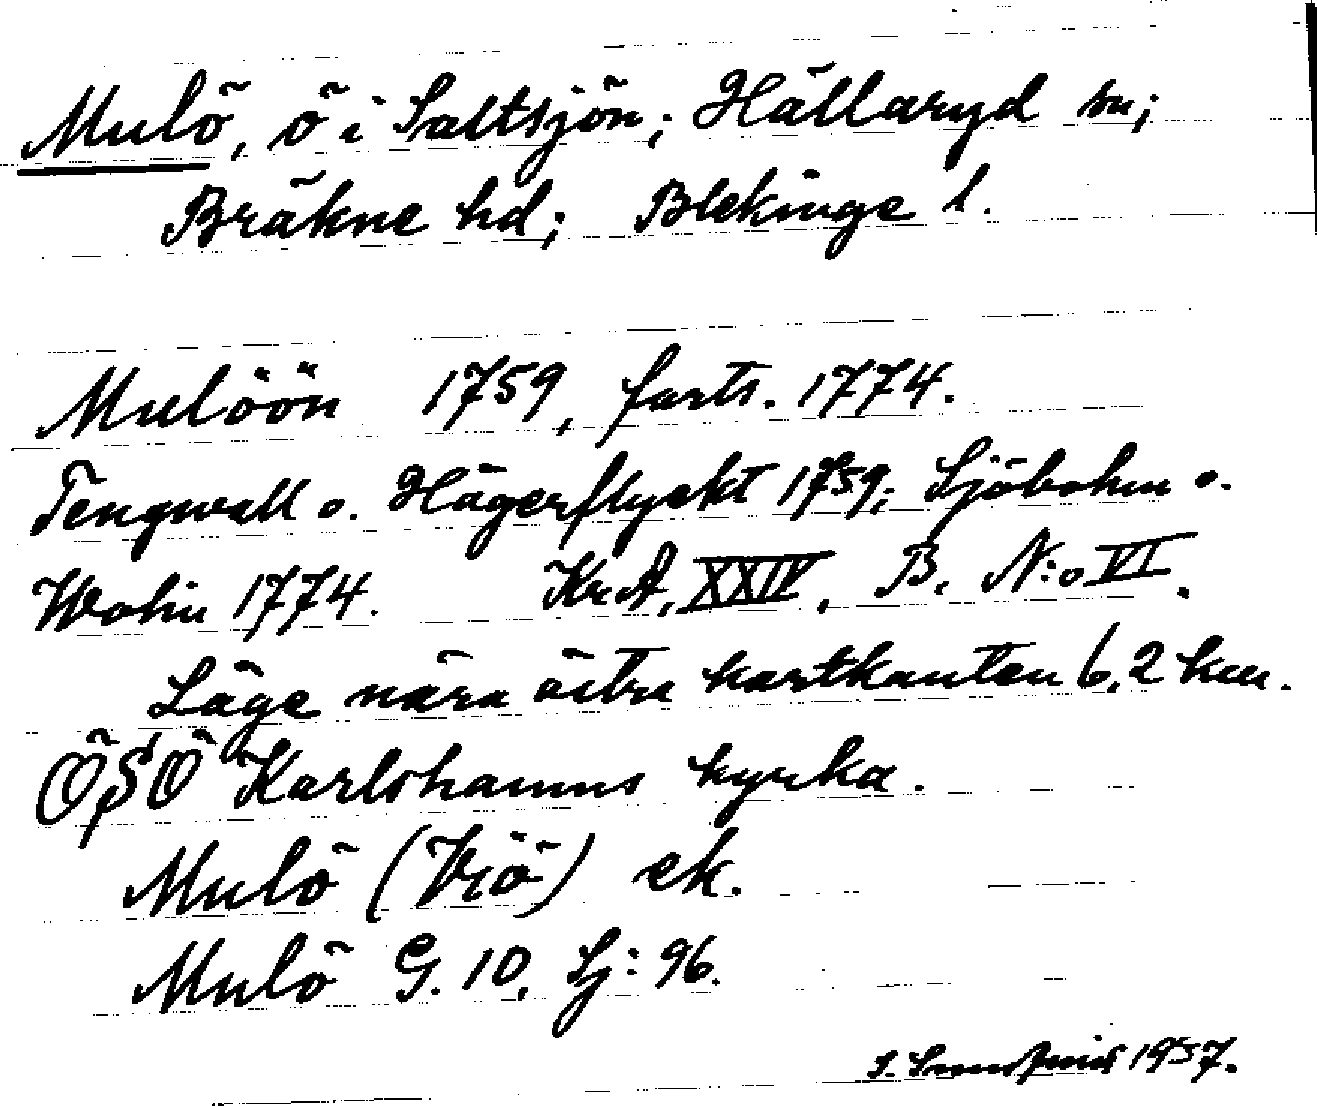 Mulö, ö i Saltsjön; Hällaryd sn;
Bräkne hd; Blekinge l.
Mulöön 1759, forts. 1774.
Tengwall o. Hägerflyckt 1759; Sjöbohm o.
Wohin 1774. Kr.A, XXIV, B. N:o VI.
Läge nära östra kartkanten 6,2 km.
ÖSÖ Karlshamns kyrka.
Mulö (Vjö) ek.
Mulö G. 10, Sj: 96.
1957.